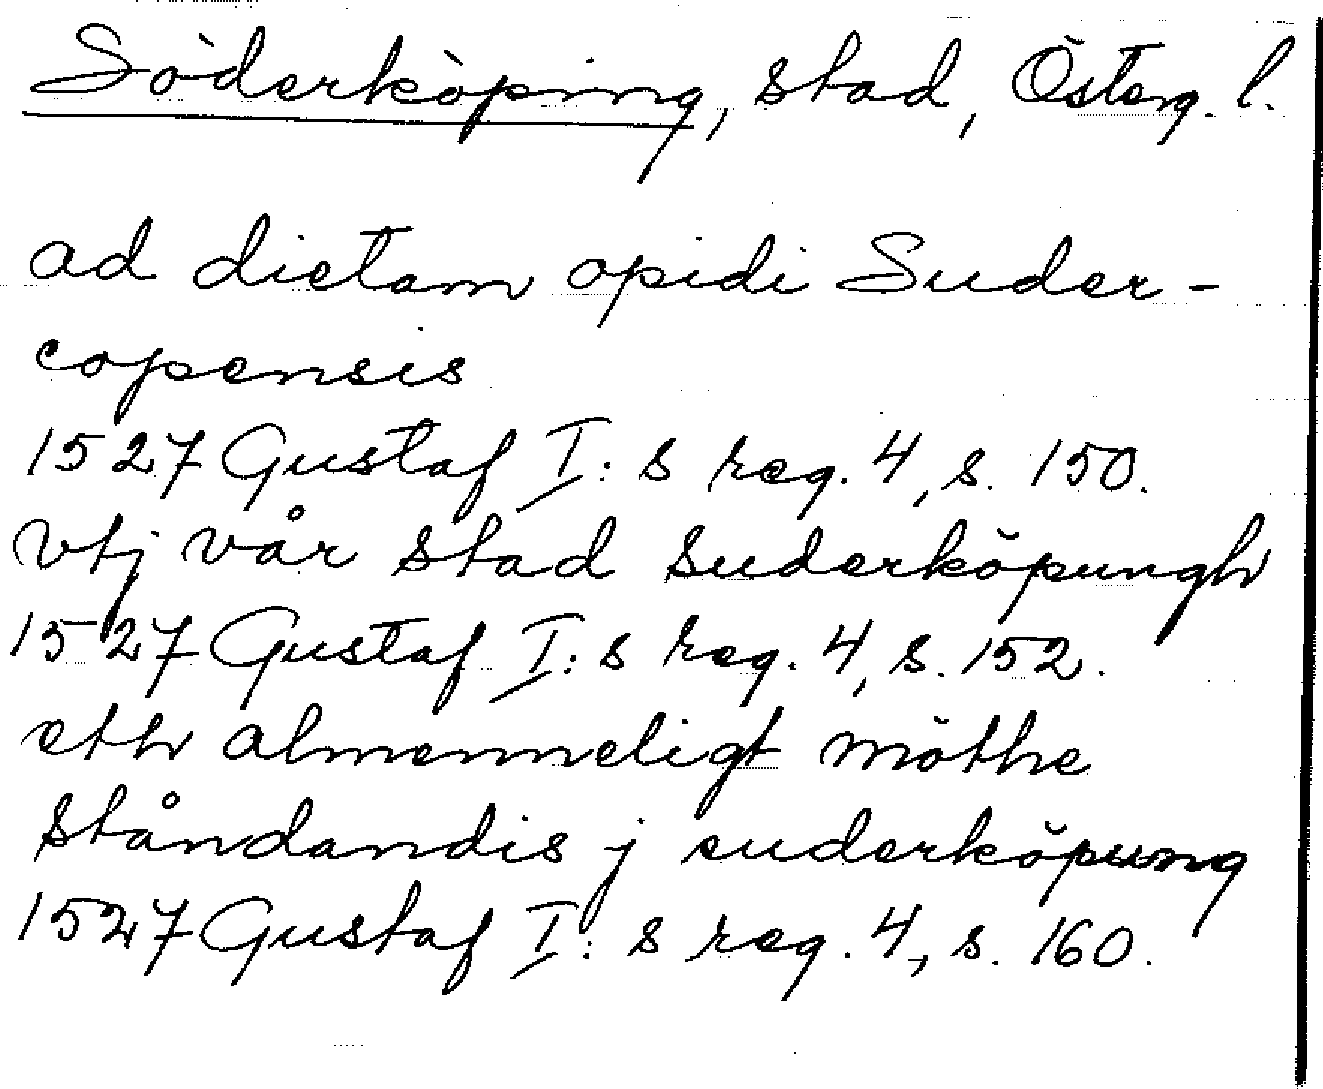 Söderköping, stad, Österg. l.
ad dietam opidi Suder-
copensis
1527 Gustaf I: s reg. 4, s. 150.
Vtj vår stad Suderköpungh
1527 Gustaf I: s reg. 4, s. 152.
eth almenneligt möthe
ståndandis j suderköpung
1527 Gustaf I: s reg. 4, s. 160.